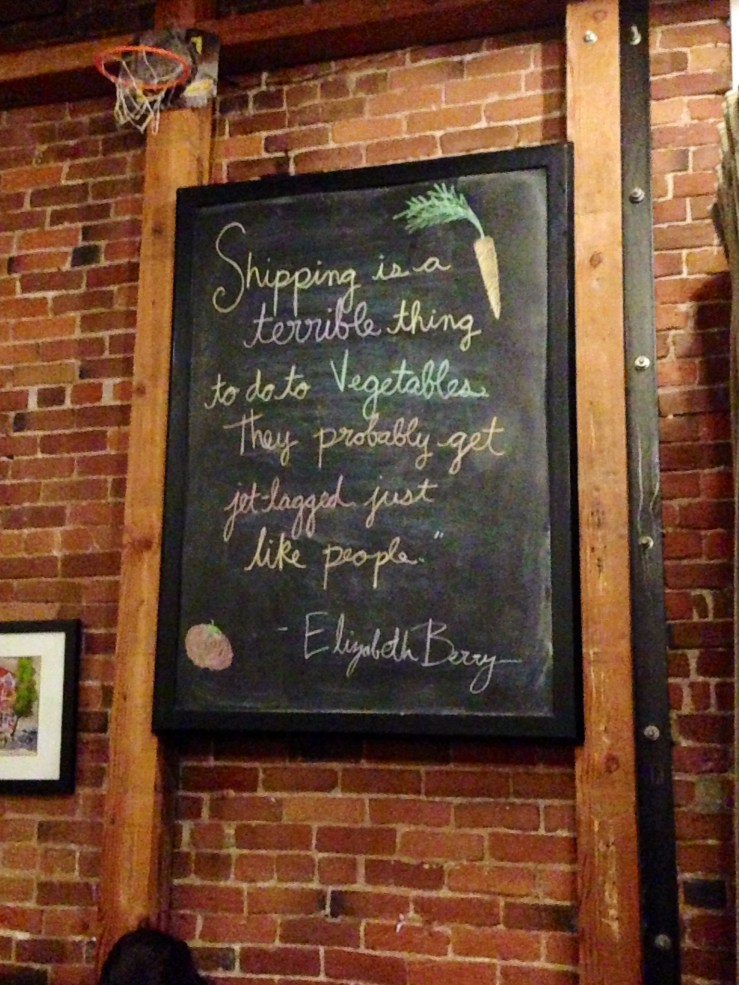 Shipping is a
terrible thing
to do to Vegetables.
They probably get
jet-lagged just
like people."
- Elizabeth Berry